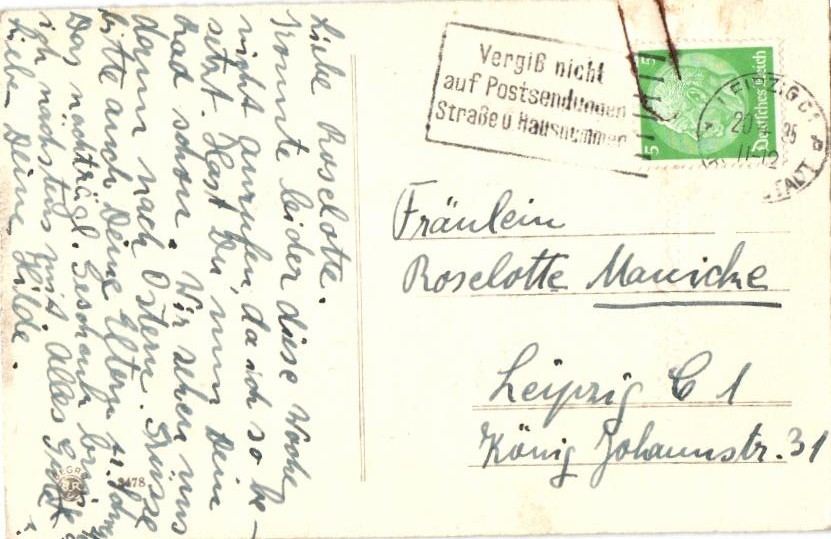 Liebe Roselotte.
Konnte leider diese Woche
nicht anrufen, da ich so be-
setzt. Hast Du nun Dein
Rad schon. Wir sehen uns
dann nach Ostern. Grüsse
bitte auch Deine Eltern u.
Das nachträgl. Geschenk bringe
ich nächstens mit. Alles Gute
Liebe Deine Hilde.
Vergiß nicht
auf Postsendungen
Straße u Hausnummer
5 5
Deutsches Reich
LEIPZIG C
20
35
11-12
Fräulein
Roselotte Manicke
Leipzig C 1
König Johannstr. 31
3478